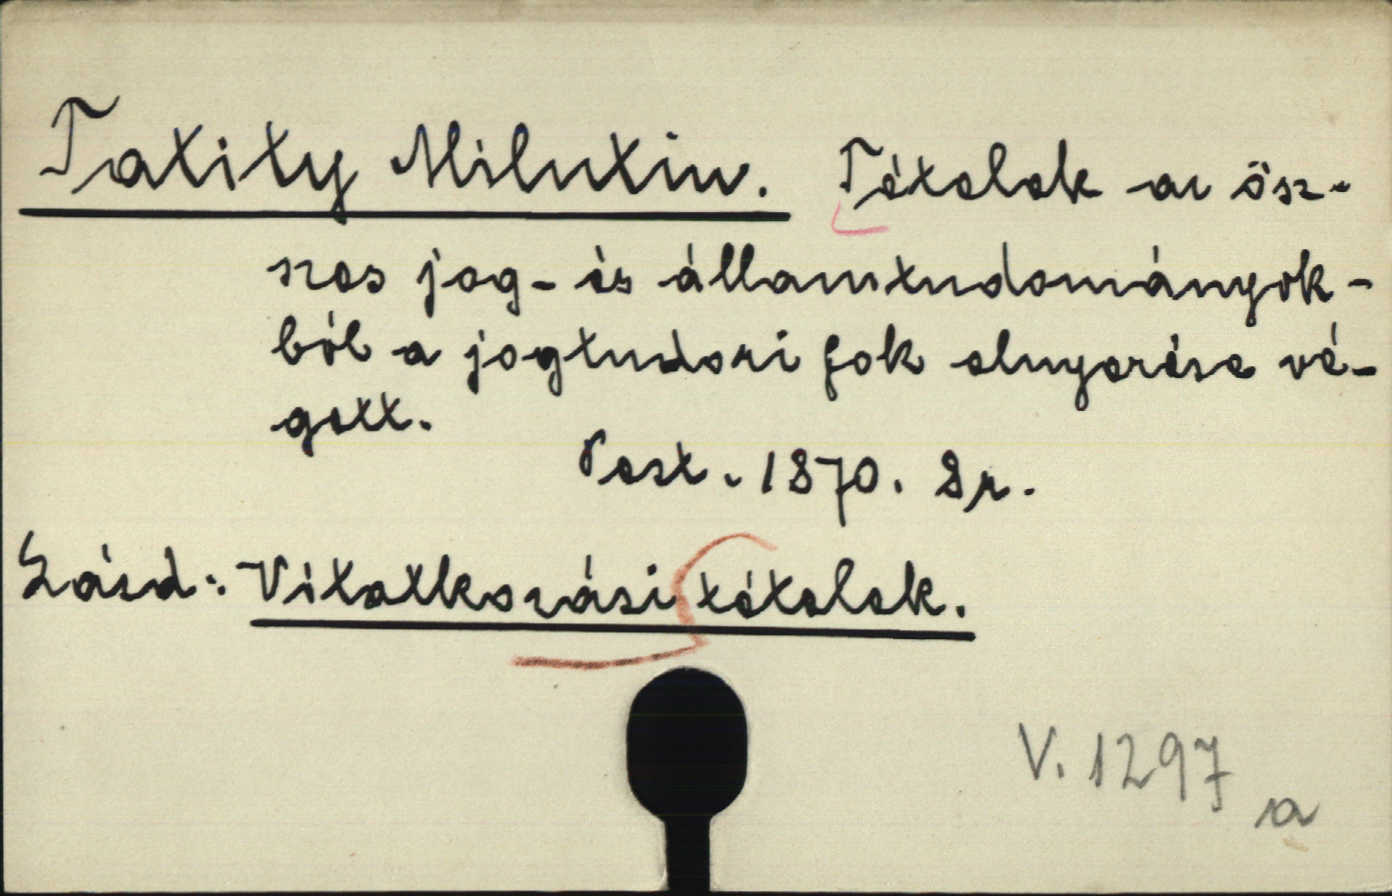 Tatity Milutin. Tételek az ösz-
szes jog- és államtudományok-
ból a jogtudori fok elnyerése vé-
gett.
Pest. 1870. 8r.
Lásd: Vitatkozási tételek.
V. 1297
a